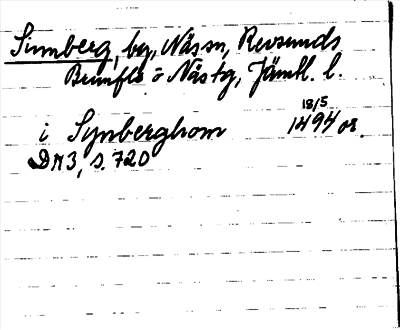 Sinnberg, by, Näs sn, Revsunds
Brunflo o Näs tg, Jämtl. l.
18/5
i Synberghom 1494 or.
DN3, s. 720